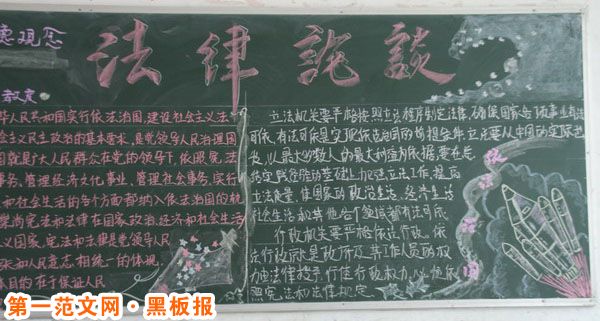 德观念
法律谈
教案
人民共和国实行依法治国,建设社会主义法
会主义民主政治的基本要求,是党领导人民治理国
国就是广大人民群众在党的领导下,依照宪法
事务,管理经济文化事业,管理社会事务,实行
和社会生活的各个方面都纳入依法治国的轨
崇尚宪法和法律在国家政治,经济和社会生活
义国家,宪法和法律是党领导人民
和人民意志相统一的体现,
本目的在于保证人民
立法机关要严格按照立法程序制定法律,确保国家各项事业有法
可依,有法可依是实现依法治国的前提条件,立法要从中国的实际出
发,以最大多数人的最大利益为依据,要在总
的基础上加速立法工作,提高
立法质量,使国家的政治生活,经济生活
社会生活和其他各个领域都有法可依
行政机关要严格依法行政,依
法行政就是政府及其工作人员的权
力由法律授予,行使行政权力,必须依
照宪法和法律规定
第一范文网·黑板报